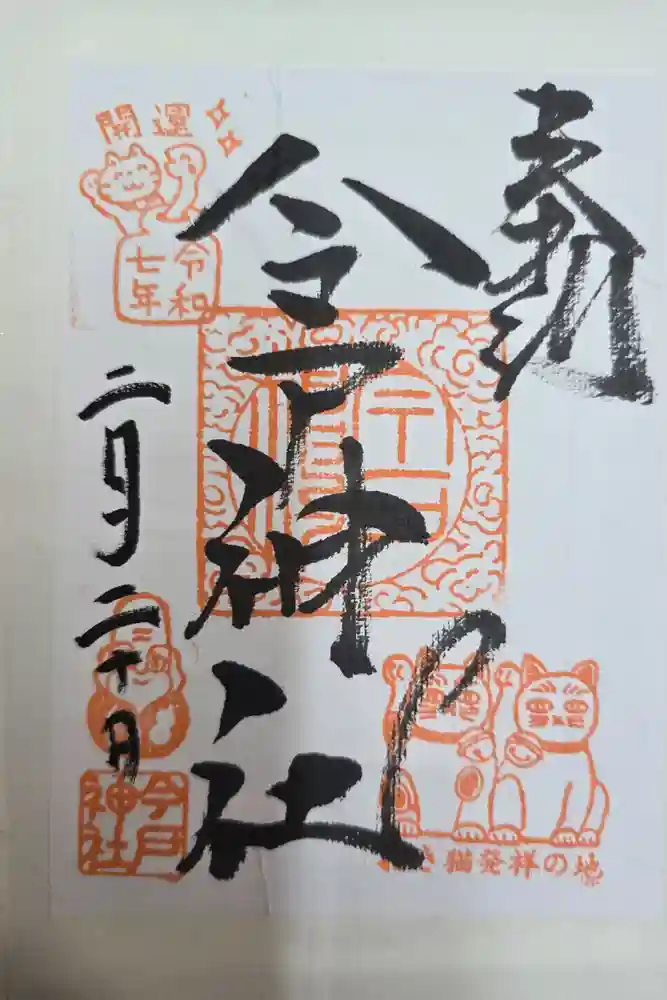 奉拝
今戸神社
開運
令和
七年
二月二十日
今戸
神社
猫発祥の地